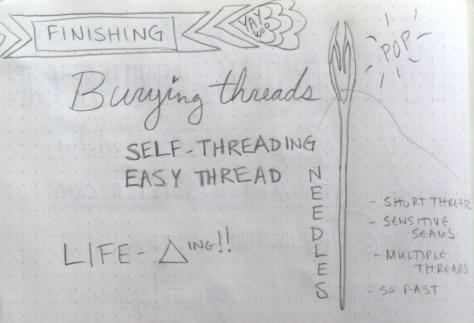 FINISHING
YAY
WOO
POP
Burying threads
SELF-THREADING
EASY THREAD
NEEDLES
LIFE-△ING!!
- SHORT THREADS
- SENSITIVE
SEAMS
- MULTIPLE
THREADS
- SO FAST